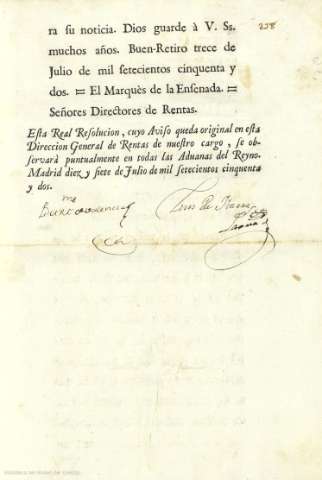 ra su noticia. Dios guarde à V. Ss. 258
muchos años. Buen-Retiro trece de
Julio de mil setecientos cinquenta y
dos. = El Marquès de la Ensenada. =
Señores Directores de Rentas.
Esta Real Resolucion, cuyo Aviso queda original en esta
Direccion General de Rentas de nuestro cargo, se ob-
servarà puntualmente en todas las Aduanas del Reyno.
Madrid diez y siete de Julio de mil setecientos cinquenta
y dos.
Luis de